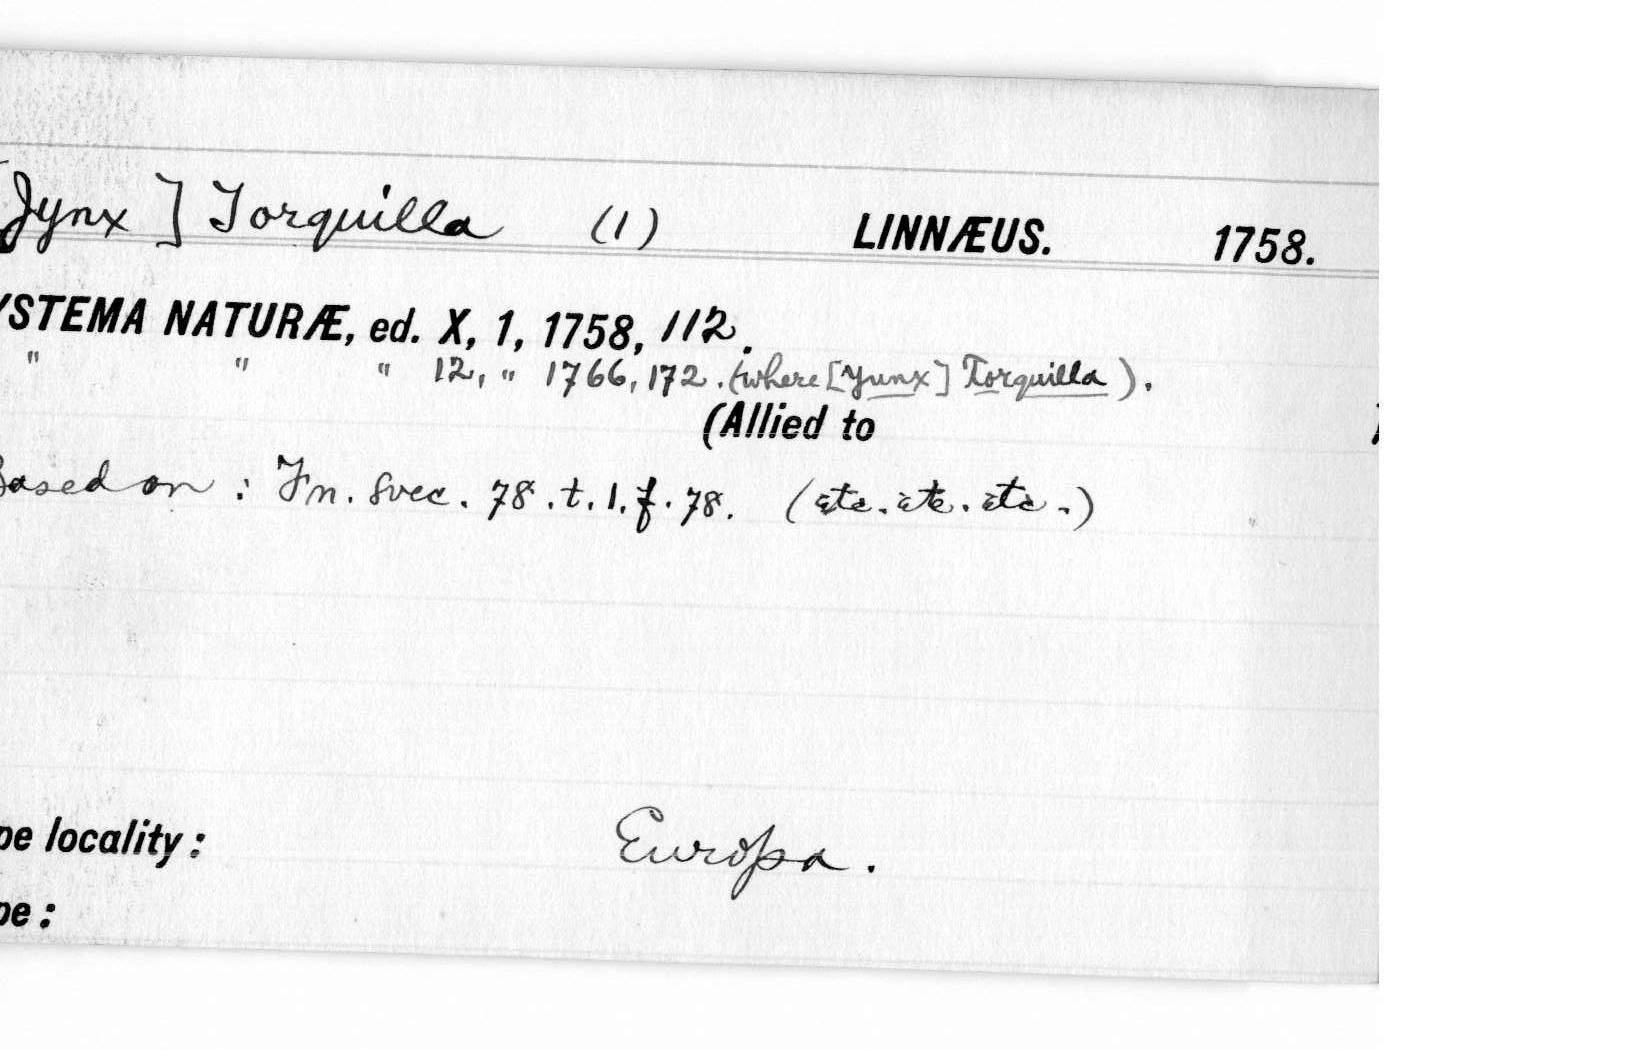 [Jynx] Torquilla (1) LINNÆUS. 1758.
YSTEMA NATURÆ, ed. X, 1, 1758, 112.
" " " 12, " 1766, 172. (where [Yunx] Torquilla).
(Allied to )
Based on : Fn. Svec. 78. t. 1. f. 78. (etc. etc. etc.)
pe locality : Europa.
pe :